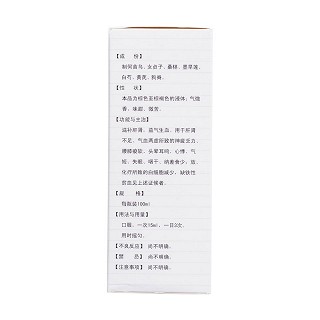 【成 份】
制何首乌、女贞子、桑椹、墨旱莲、
白芍、黄芪、狗脊。
【性 状】
本品为棕色至棕褐色的液体；气微
香，味甜、微苦。
【功能与主治】
滋补肝肾，益气生血。用于肝肾
不足，气血两虚所致的神疲乏力、
腰膝酸软、头晕耳鸣、心悸、气
短、失眠、咽干、纳差食少；放、
化疗所致的白细胞减少、缺铁性
贫血见上述证候者。
【规 格】
每瓶装100ml
【用法与用量】
口服。一次15ml，一日3次。
用时摇匀。
【不良反应】 尚不明确。
【禁 忌】 尚不明确。
【注意事项】 尚不明确。